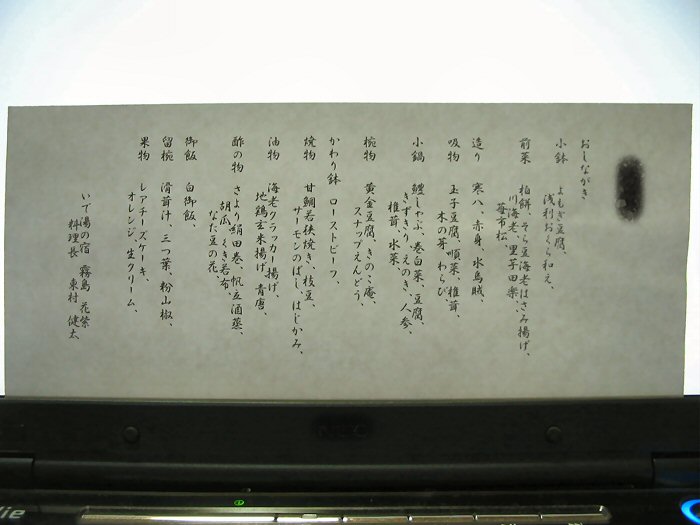 おしながき
小鉢 よもぎ豆腐、
浅利おくら和え、
前菜 柏餅、そら豆海老はさみ揚げ、
川海老、里芋田楽、
苺市松、
造り 寒八、赤身、水烏賊、
吸物 玉子豆腐、順菜、椎茸、
木の芽、わらび、
小鍋 鰹しゃぶ、巻白菜、豆腐、
きずきり、えのき、人参、
椎茸、水菜
椀物 黄金豆腐、きのこ庵、
スナップえんどう、
かわり鉢 ローストビーフ、
焼物 甘鯛若狭焼き、枝豆、
サーモンのばし、はじかみ、
油物 海老クラッカー揚げ、
地鶏玄米揚げ、青唐、
酢の物 さより絹田巻、帆立酒蒸、
胡瓜、くき若布、
なた豆の花、
御飯 白御飯、
留椀 滑茸汁、三つ葉、粉山椒、
果物 レアチーズケーキ、
オレンジ、生クリーム、
いで湯の宿 霧島 花紫
料理長 東村 健太
NEC
lie